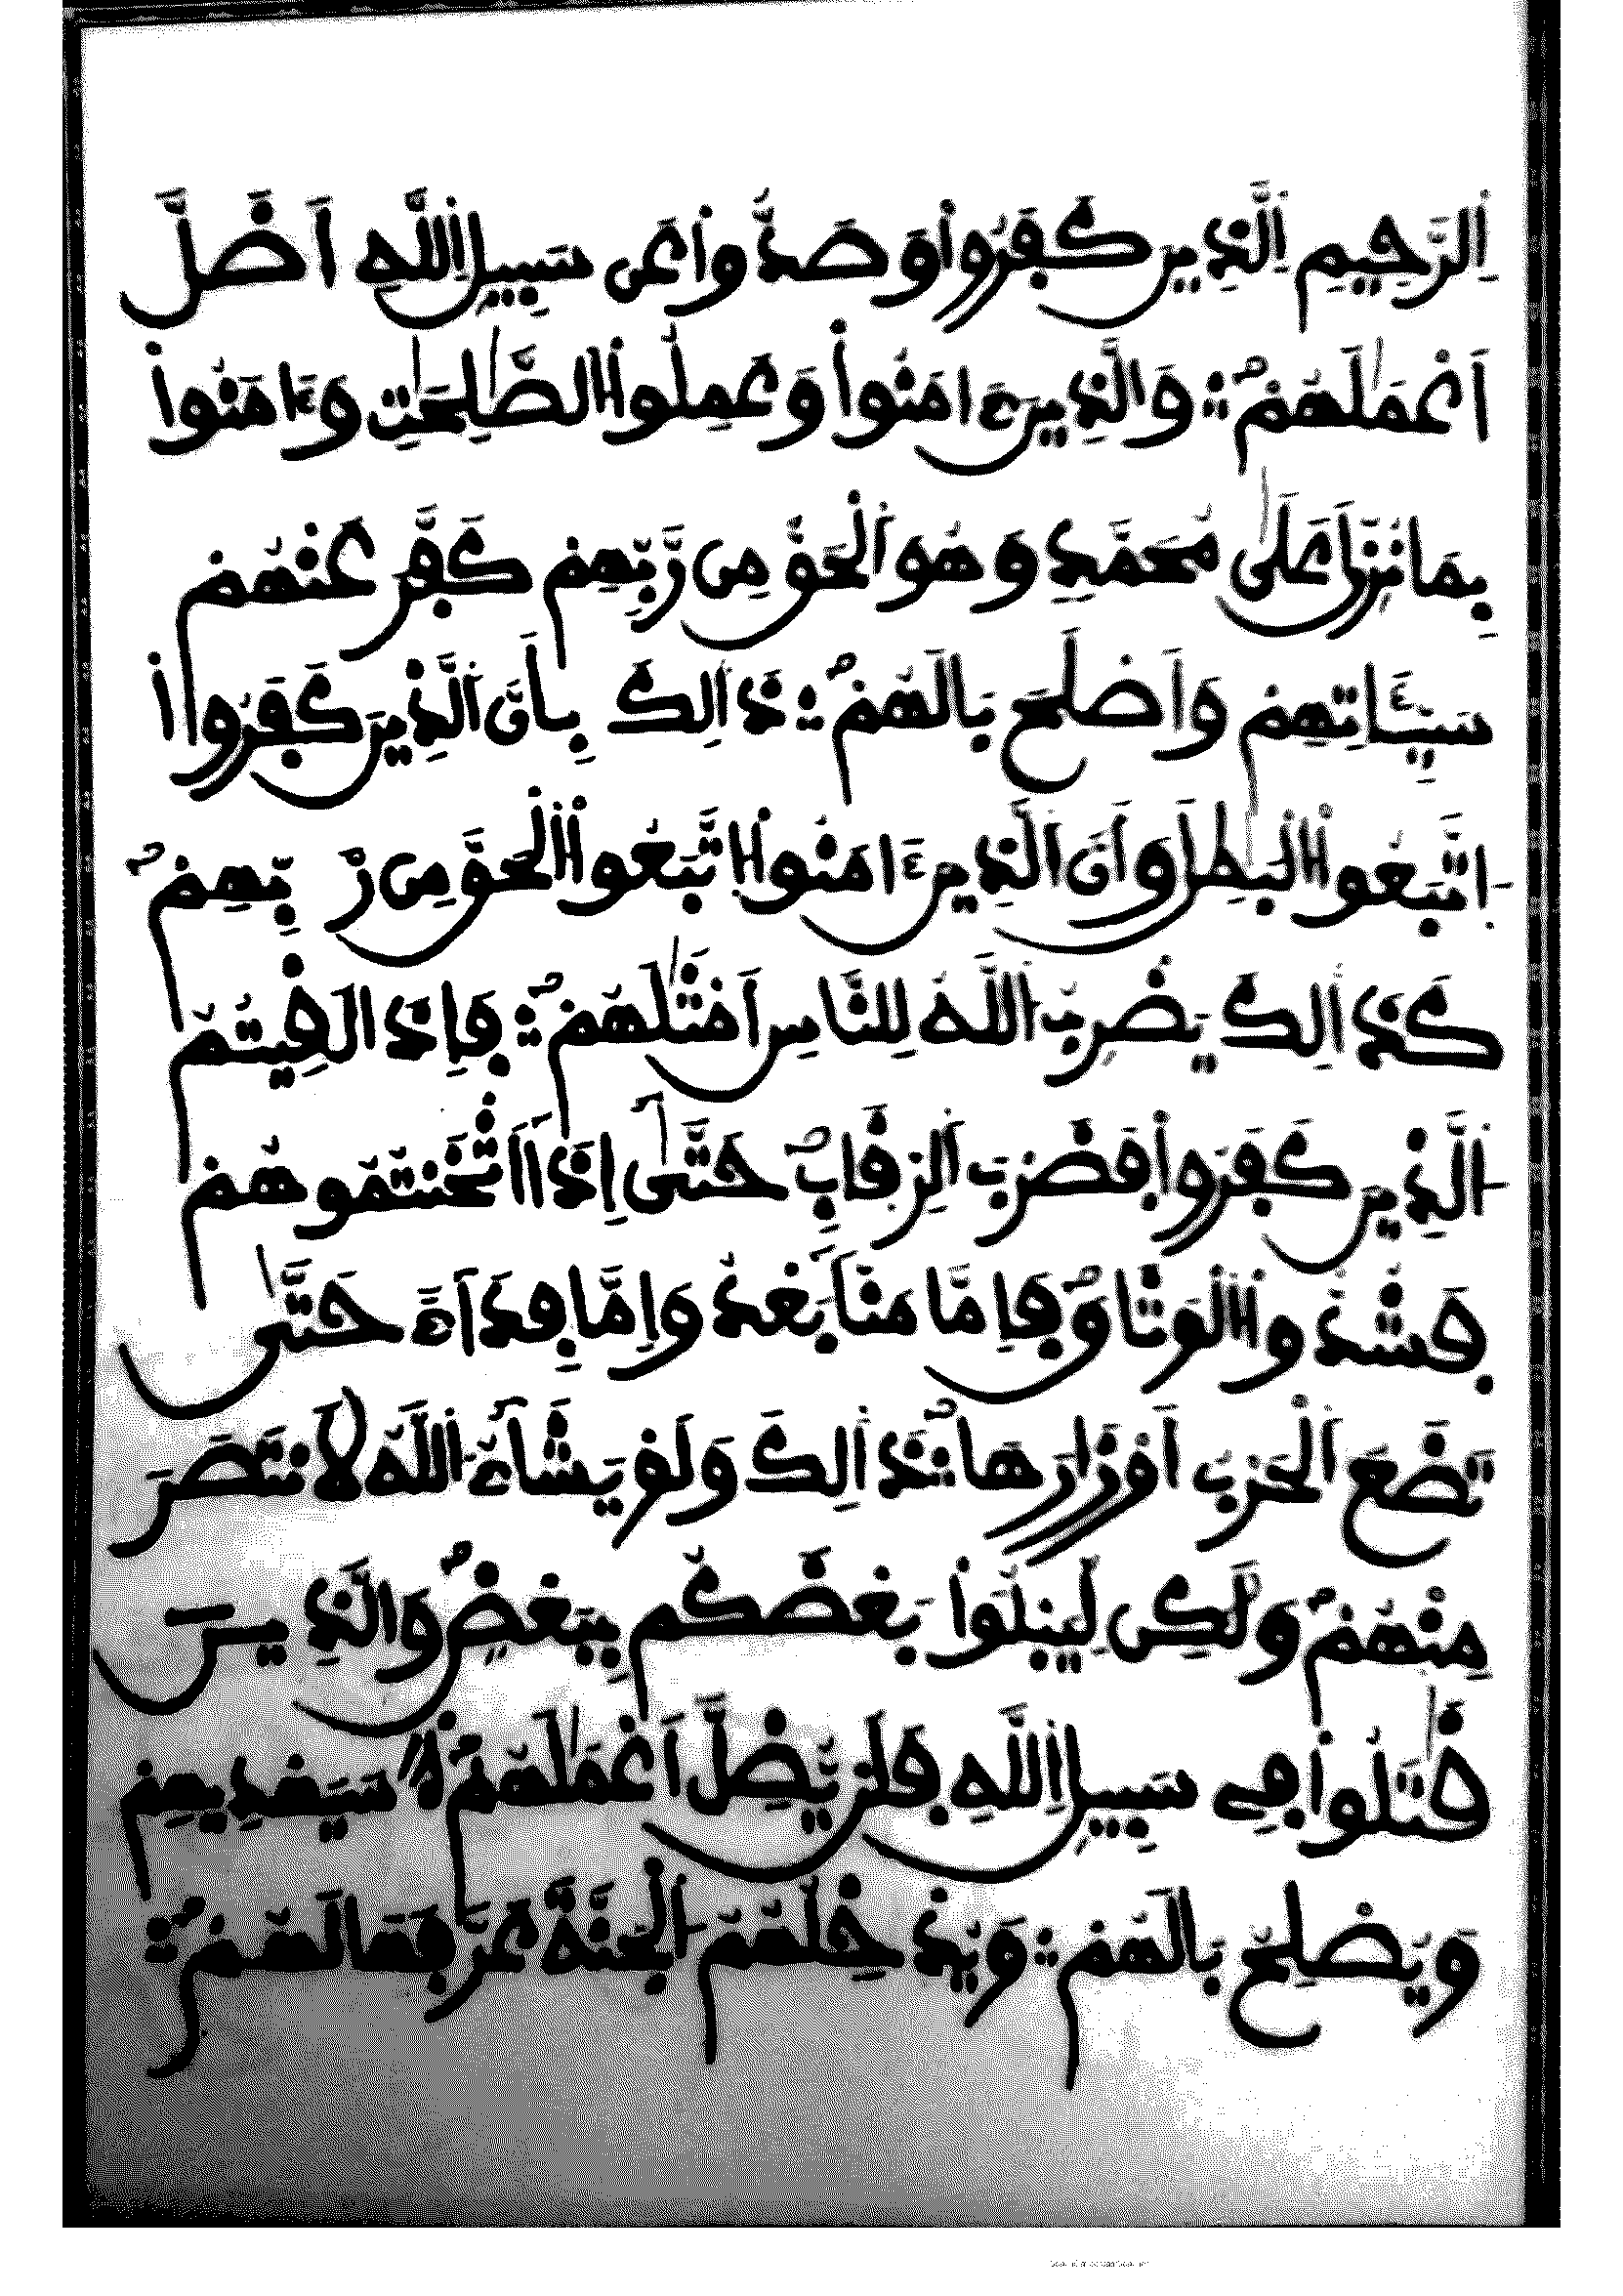 اِلرَّحِيمِ اِلَّذِينَ كَفَرُواْ وَصَدُّواْ عَن سَبِيلِ اِللَّهِ أَضَلَّ
أَعْمَٰلَهُمْ وَالَّذِينَ ءَامَنُواْ وَعَمِلُواْ الصَّٰلِحَٰتِ وَءَامَنُواْ
بِمَا نُزِّلَ عَلَىٰ مُحَمَّدٍ وَهُوَ اَلْحَقُّ مِن رَّبِّهِمْ كَفَّرَ عَنْهُمْ
سَيِّـَٔاتِهِمْ وَأَصْلَحَ بَالَهُمْ ذَالِكَ بِأَنَّ اَلَّذِينَ كَفَرُواْ
اُتَّبَعُواْ الْبَٰطِلَ وَأَنَّ اَلَّذِينَ ءَامَنُواْ اتَّبَعُواْ الْحَقَّ مِن رَّبِّهِمْ
كَذَالِكَ يَضْرِبُ اُللَّهُ لِلنَّاسِ أَمْثَٰلَهُمْ فَإِذَا لَقِيتُمُ
الَّذِينَ كَفَرُواْ فَضَرْبَ اَلرِّقَابِ حَتَّىٰ إِذَا أَثْخَنتُمُوهُمْ
فَشُدُّواْ الْوَثَاقَ فَإِمَّا مَنّاً بَعْدُ وَإِمَّا فِدَآءً حَتَّىٰ
تَضَعَ اَلْحَرْبُ أَوْزَارَهَا ذَالِكَ وَلَوْ يَشَآءُ اُللَّهُ لَانتَصَرَ
مِنْهُمْ وَلَٰكِن لِّيَبْلُوَاْ بَعْضَكُم بِبَعْضٍ وَالَّذِينَ
قَٰتَلُواْ فِي سَبِيلِ اِللَّهِ فَلَنْ يُّضِلَّ أَعْمَٰلَهُمْ سَيَهْدِيهِمْ
وَيُصْلِحُ بَالَهُمْ وَيُدْخِلُهُمُ الْجَنَّةَ عَرَّفَهَا لَهُمْ